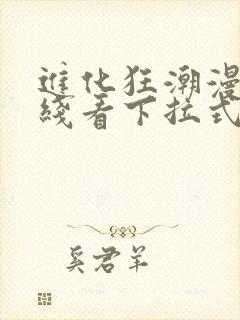 進化狂潮漫
綫看下拉式
奚君羊